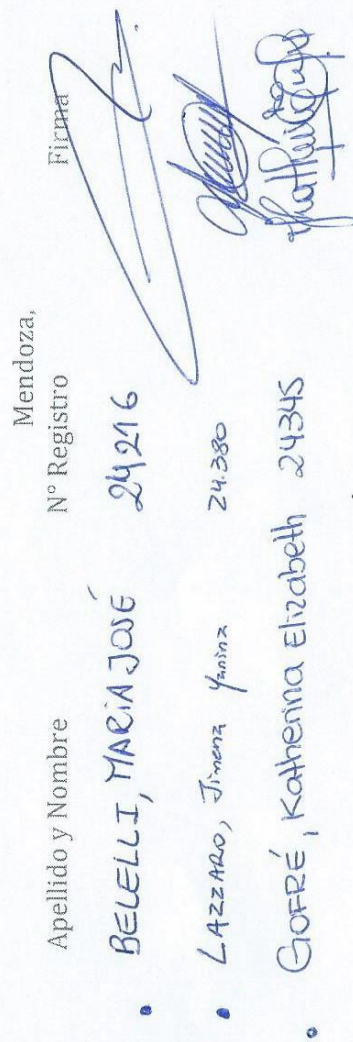 Mendoza,
Apellido y Nombre N° Registro Firma
• BELELLI, MARIA JOSÉ 24216
• LAZZARO, Jimena Yanina 24.380
• GOFRÉ, Katherina Elizabeth 24345